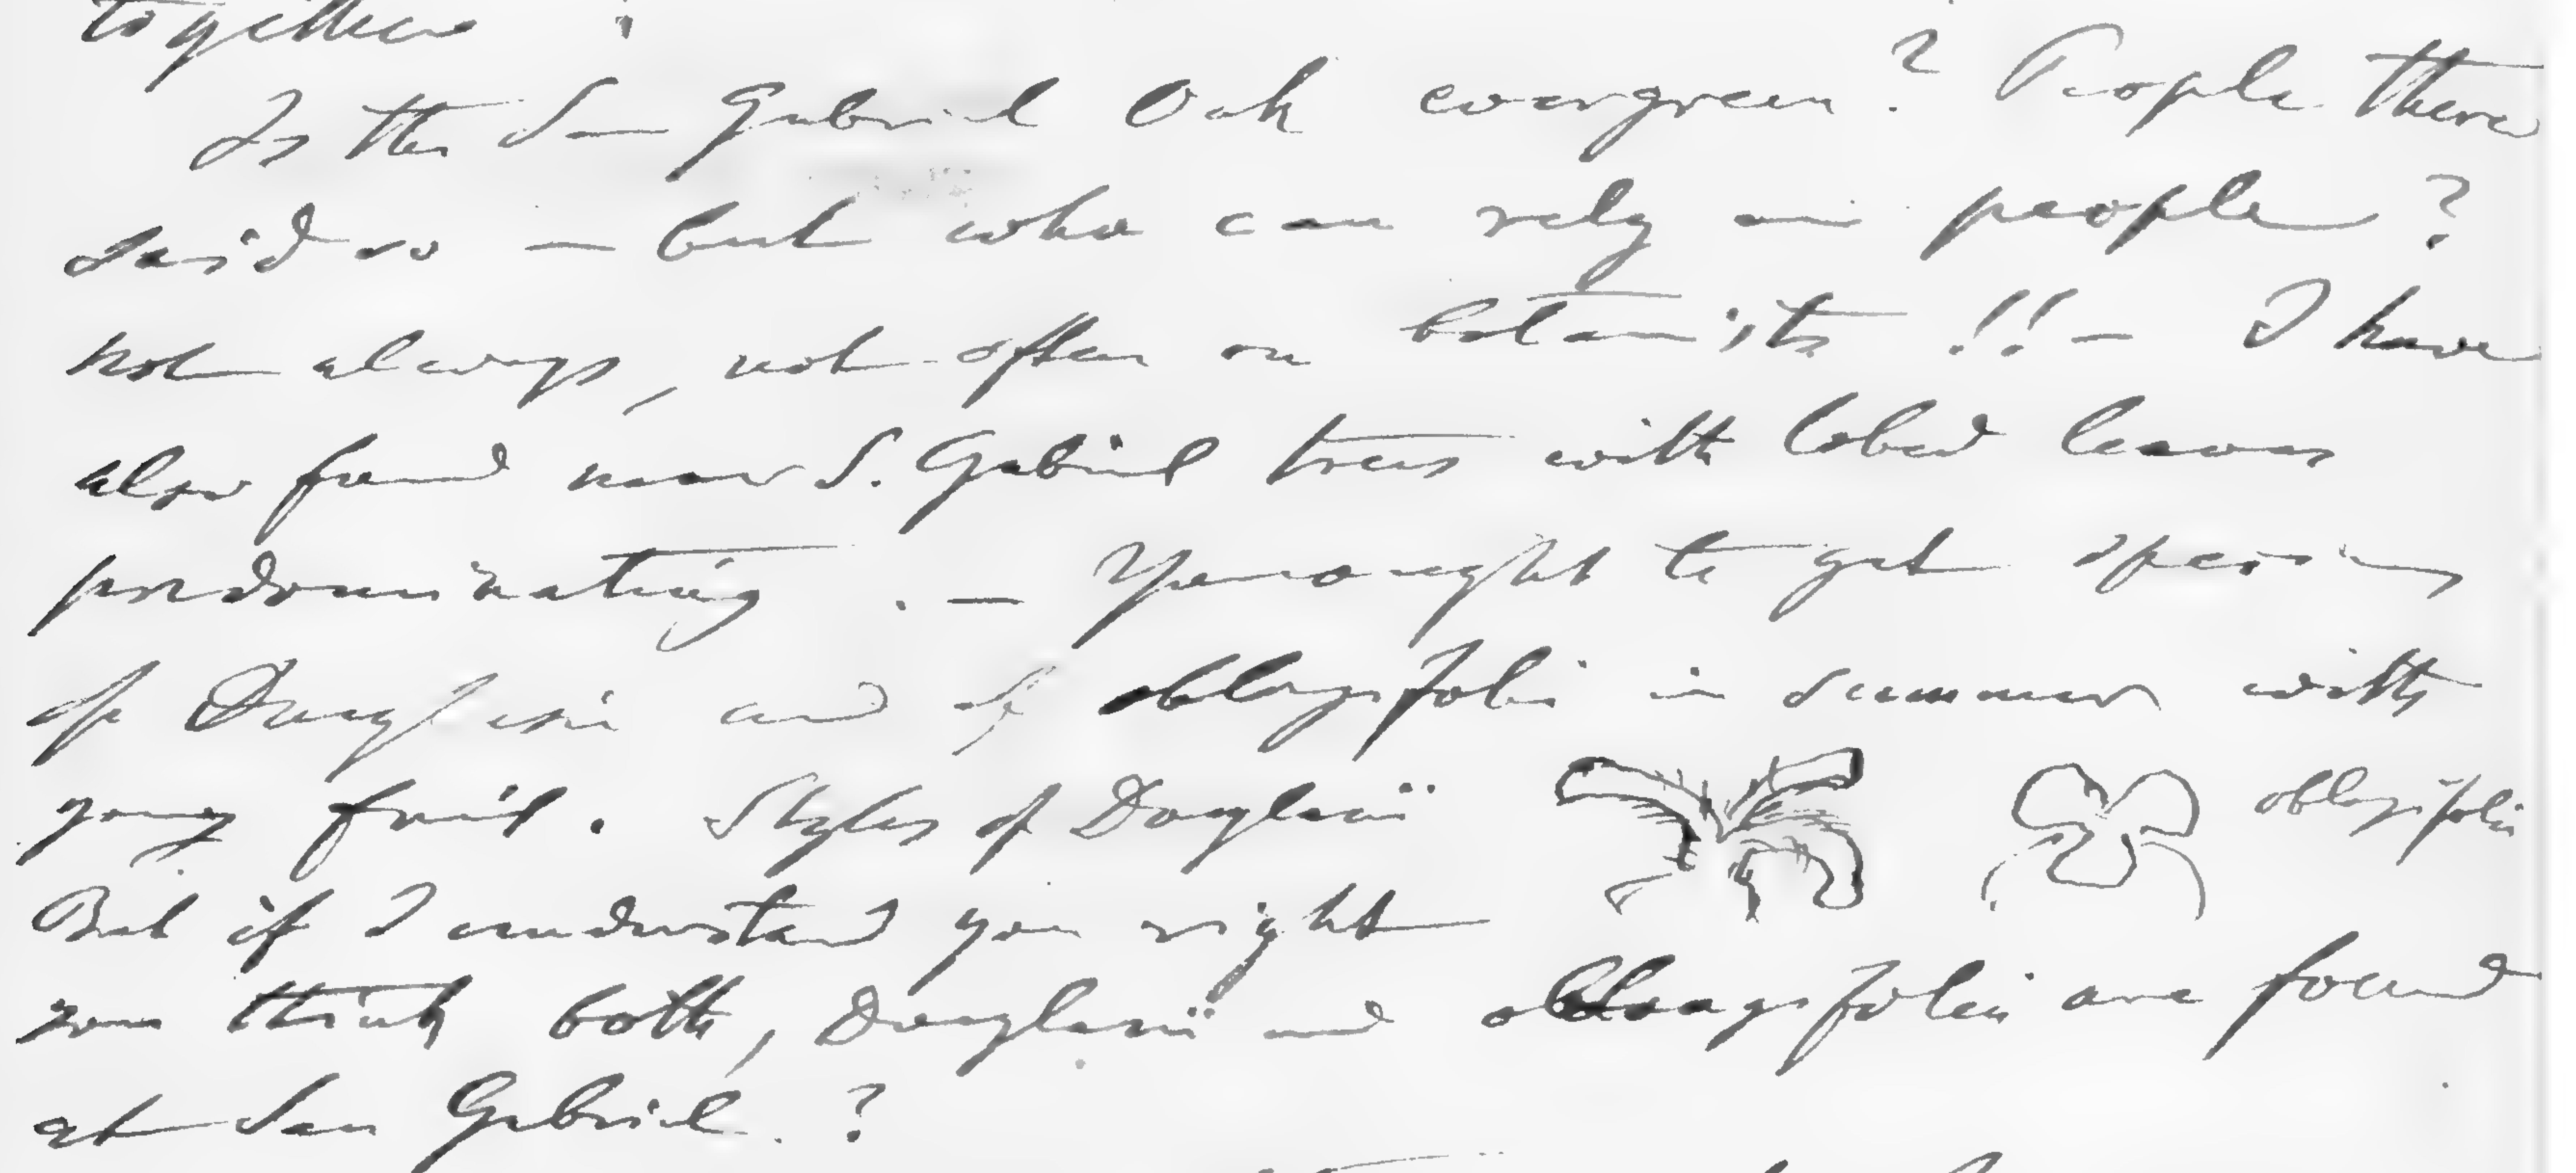 together
Is the San Gabriel Oak evergreen? People there
said so — but who can rely on people?
not always, not often on botanists!! — I have
also found near S. Gabriel trees with lobed leaves
predominating. — You ought to get specims
of Douglasii and of oblongifolia in summer with
young fruit. Styles of Douglasii oblongifolia
But if I understand you right
you think both, Douglasii and oblongifolia are found
at San Gabriel.?